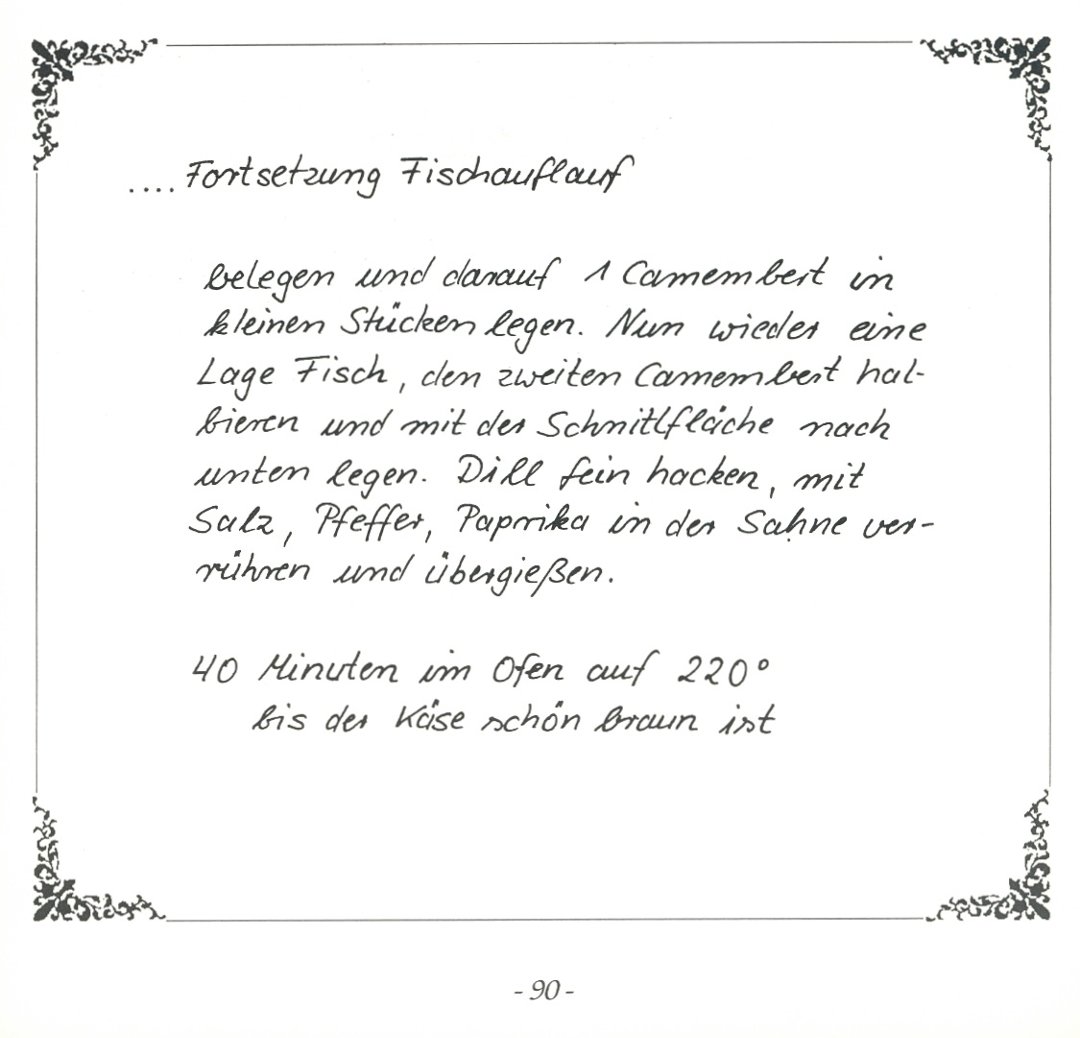 .... Fortsetzung Fischauflauf
belegen und darauf 1 Camembert in
kleinen Stücken legen. Nun wieder eine
Lage Fisch, den zweiten Camembert hal-
bieren und mit der Schnittfläche nach
unten legen. Dill fein hacken, mit
Salz, Pfeffer, Paprika in der Sahne ver-
rühren und übergießen.
40 Minuten im Ofen auf 220°
bis der Käse schön braun ist
- 90 -